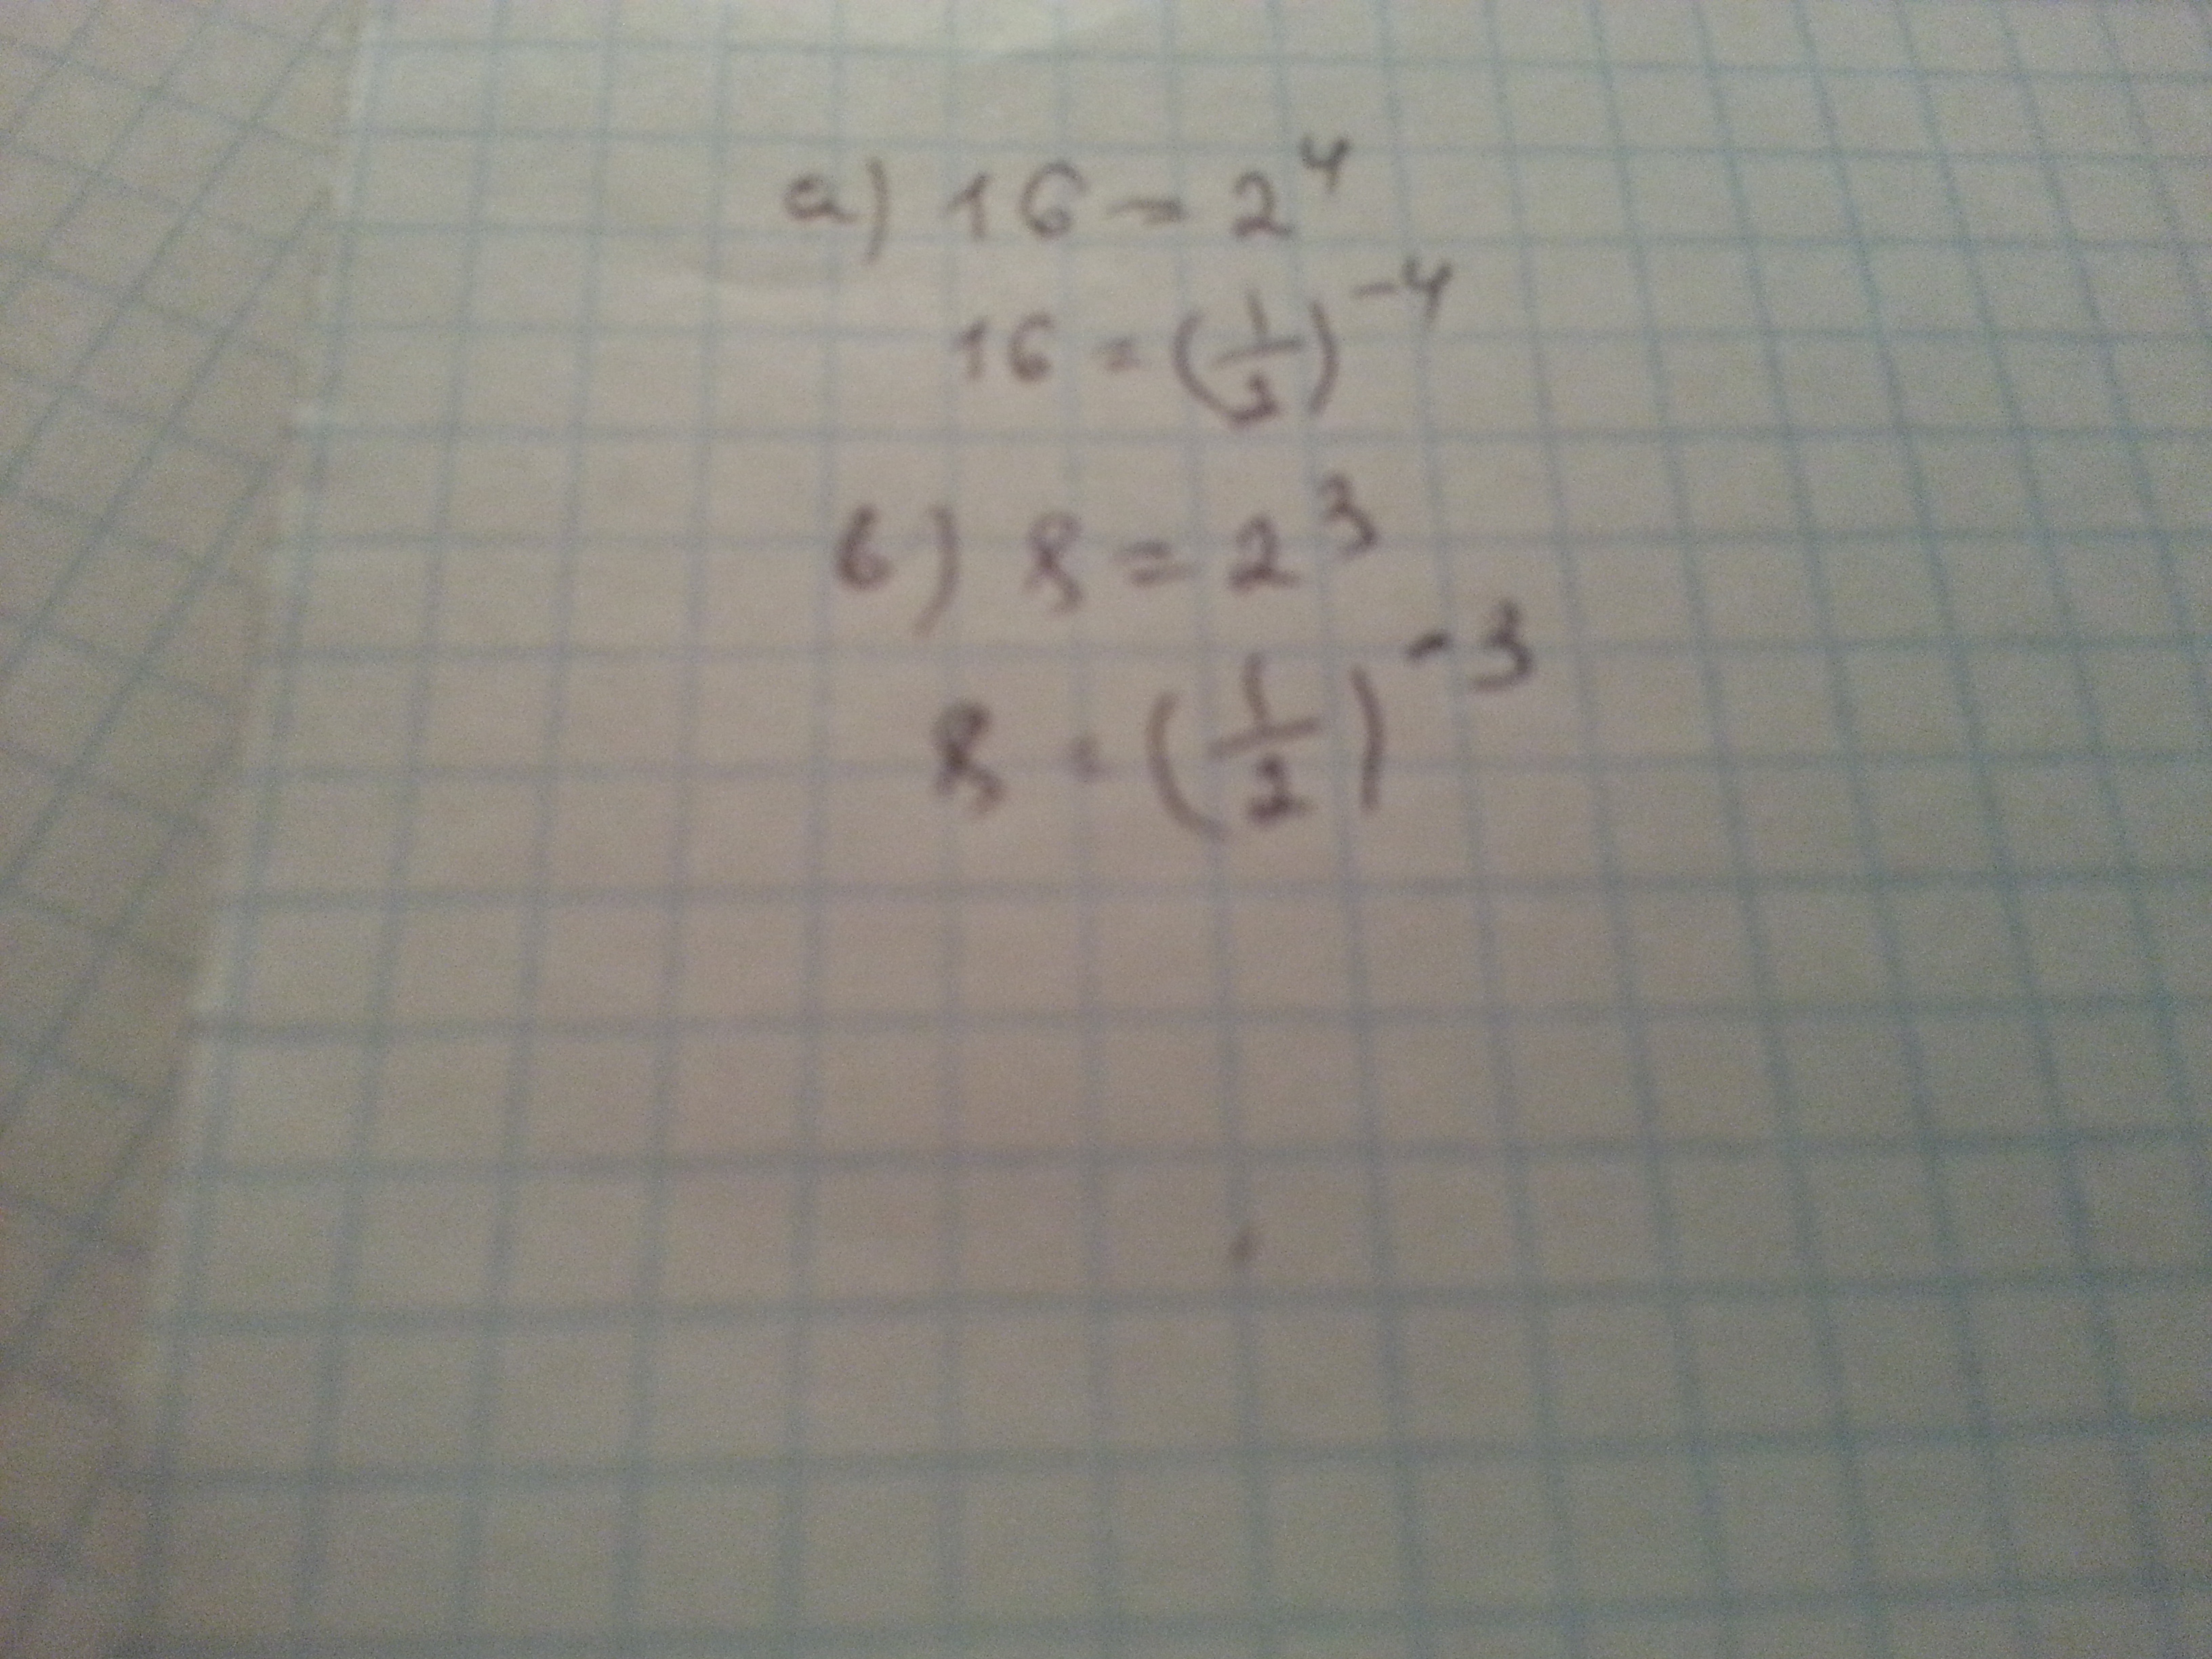 а) 16 = 2⁴
16 = (1/2)⁻⁴
б) 8 = 2³
8 = (1/2)⁻³